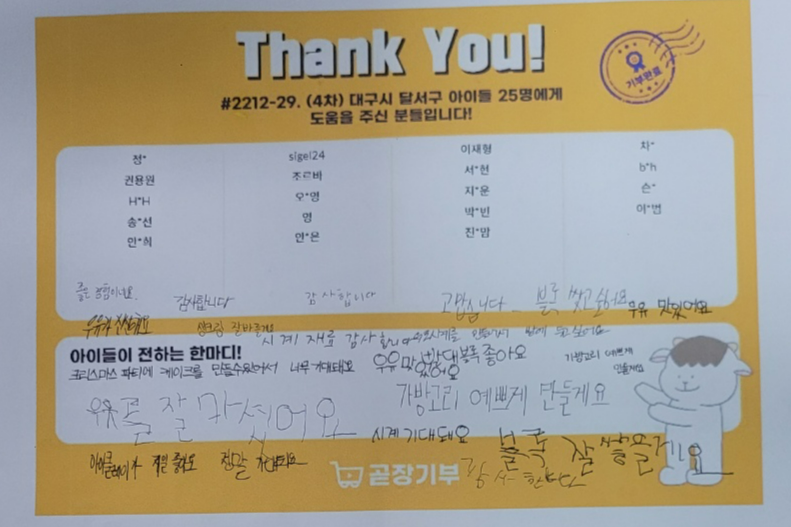 Thank You!
기부완료
#2212-29. (4차) 대구시 달서구 아이들 25명에게
도움을 주신 분들입니다!
정* sigel24 이재형 차*
권용원 조르바 서*현 b*h
H*H 오*영 지*운 손*
송*선 영 박*빈 이*범
민*희 안*은 진*맘
감사합니다 감사합니다 고맙습니다 블록 쌓고 싶어요 우유 맛있어요
시계 재료 감사합니다
아이들이 전하는 한마디!
크리스마스 파티에 케이크를 만들수있어서 너무 기대돼요 우유 맛있어요 블록 좋아요
가방고리 예쁘게 만들게요
우유 잘 마셨어요 가방고리 예쁘게 만들게요
시계 기대돼요 블록 잘 쌓을게요
아이클레이가 제일 좋아요 정말
곧장기부 감사합니다